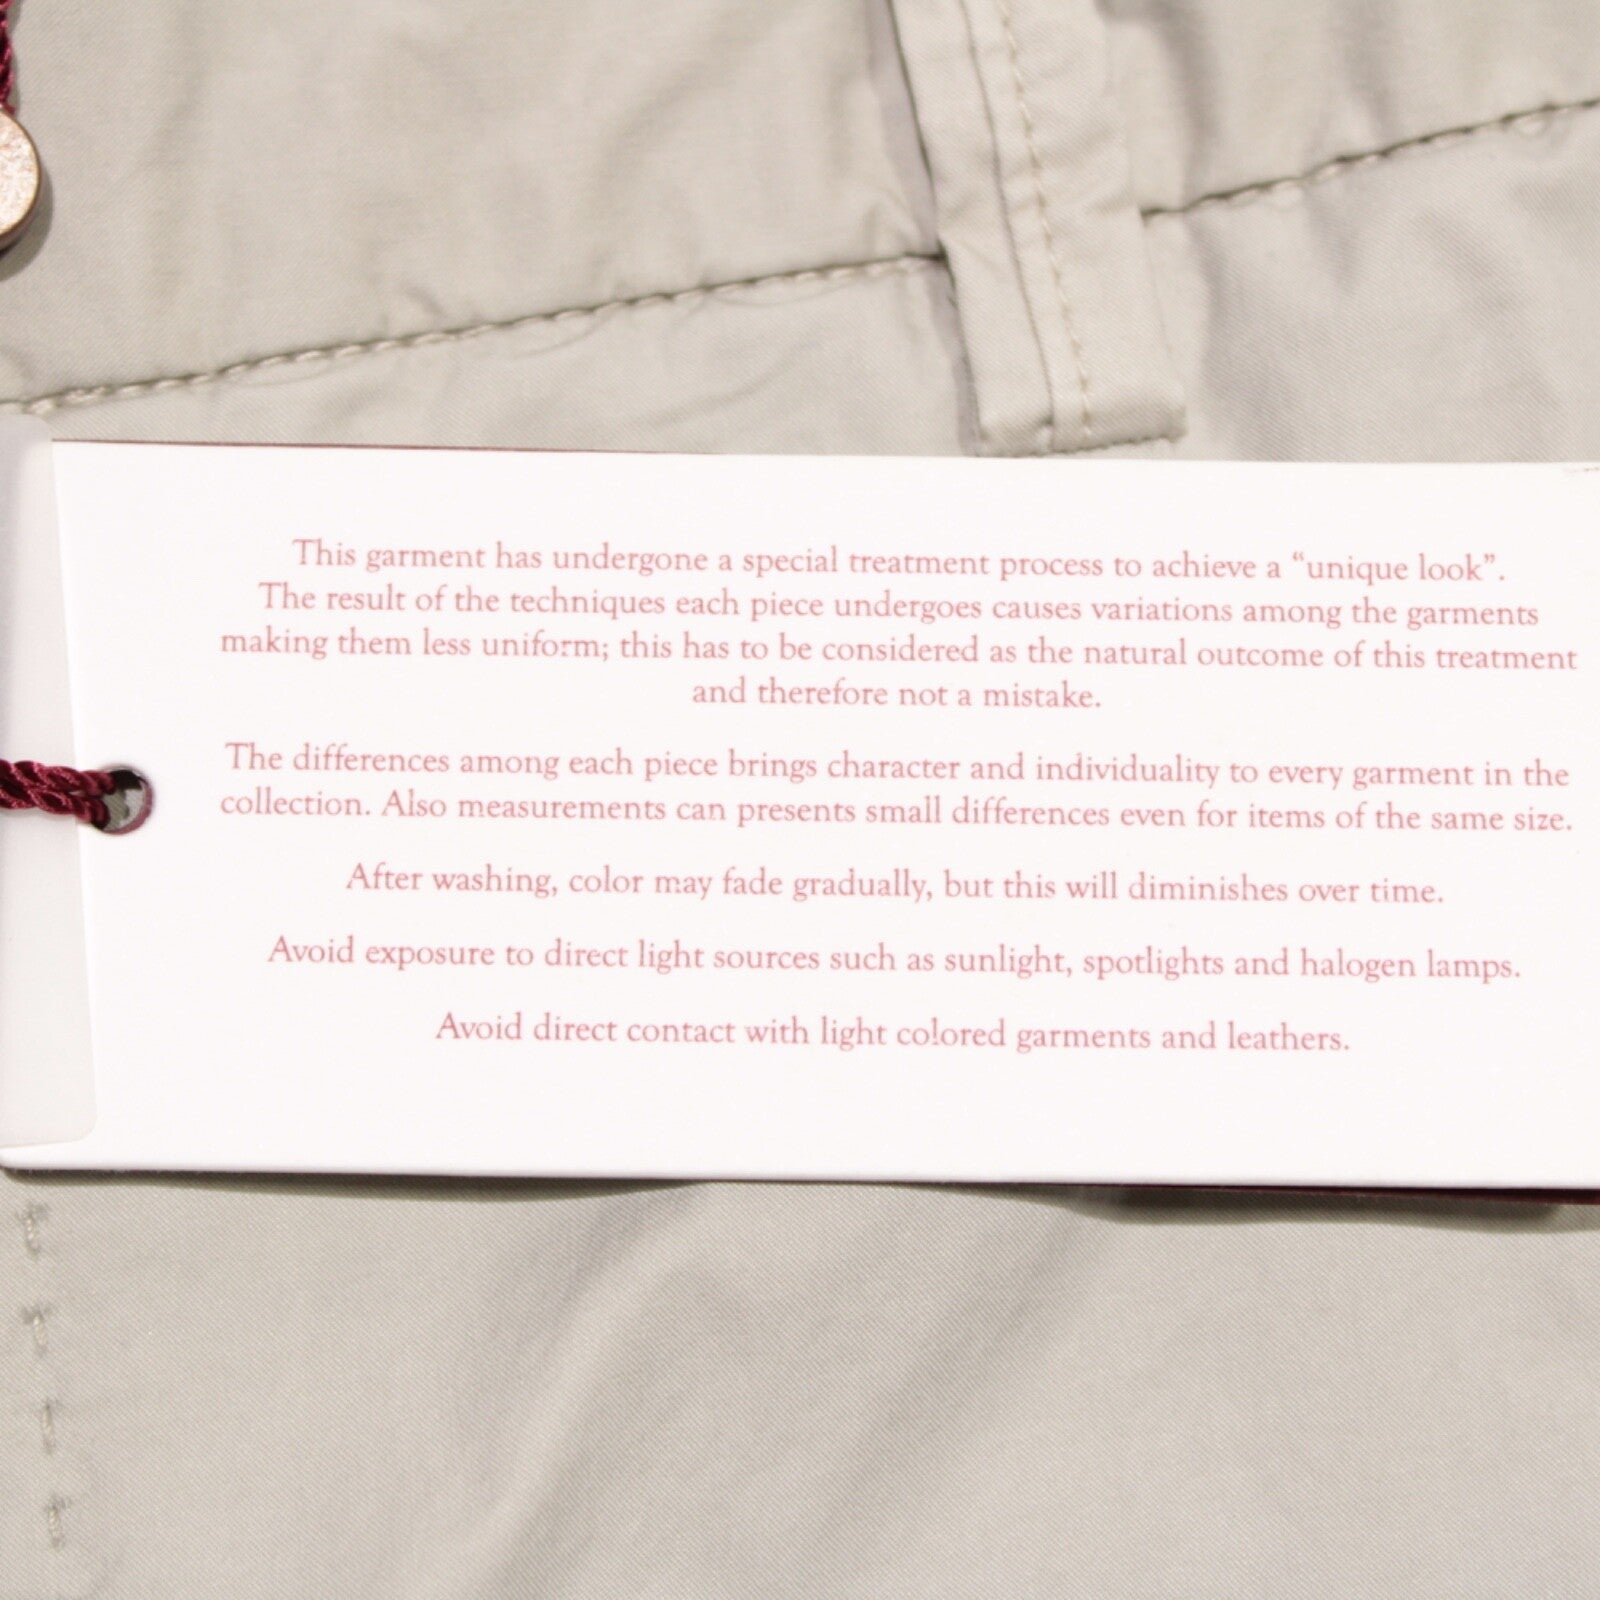 This garment has undergone a special treatment process to achieve a “unique look”.
The result of the techniques each piece undergoes causes variations among the garments
making them less uniform; this has to be considered as the natural outcome of this treatment
and therefore not a mistake.
The differences among each piece brings character and individuality to every garment in the
collection. Also measurements can presents small differences even for items of the same size.
After washing, color may fade gradually, but this will diminishes over time.
Avoid exposure to direct light sources such as sunlight, spotlights and halogen lamps.
Avoid direct contact with light colored garments and leathers.